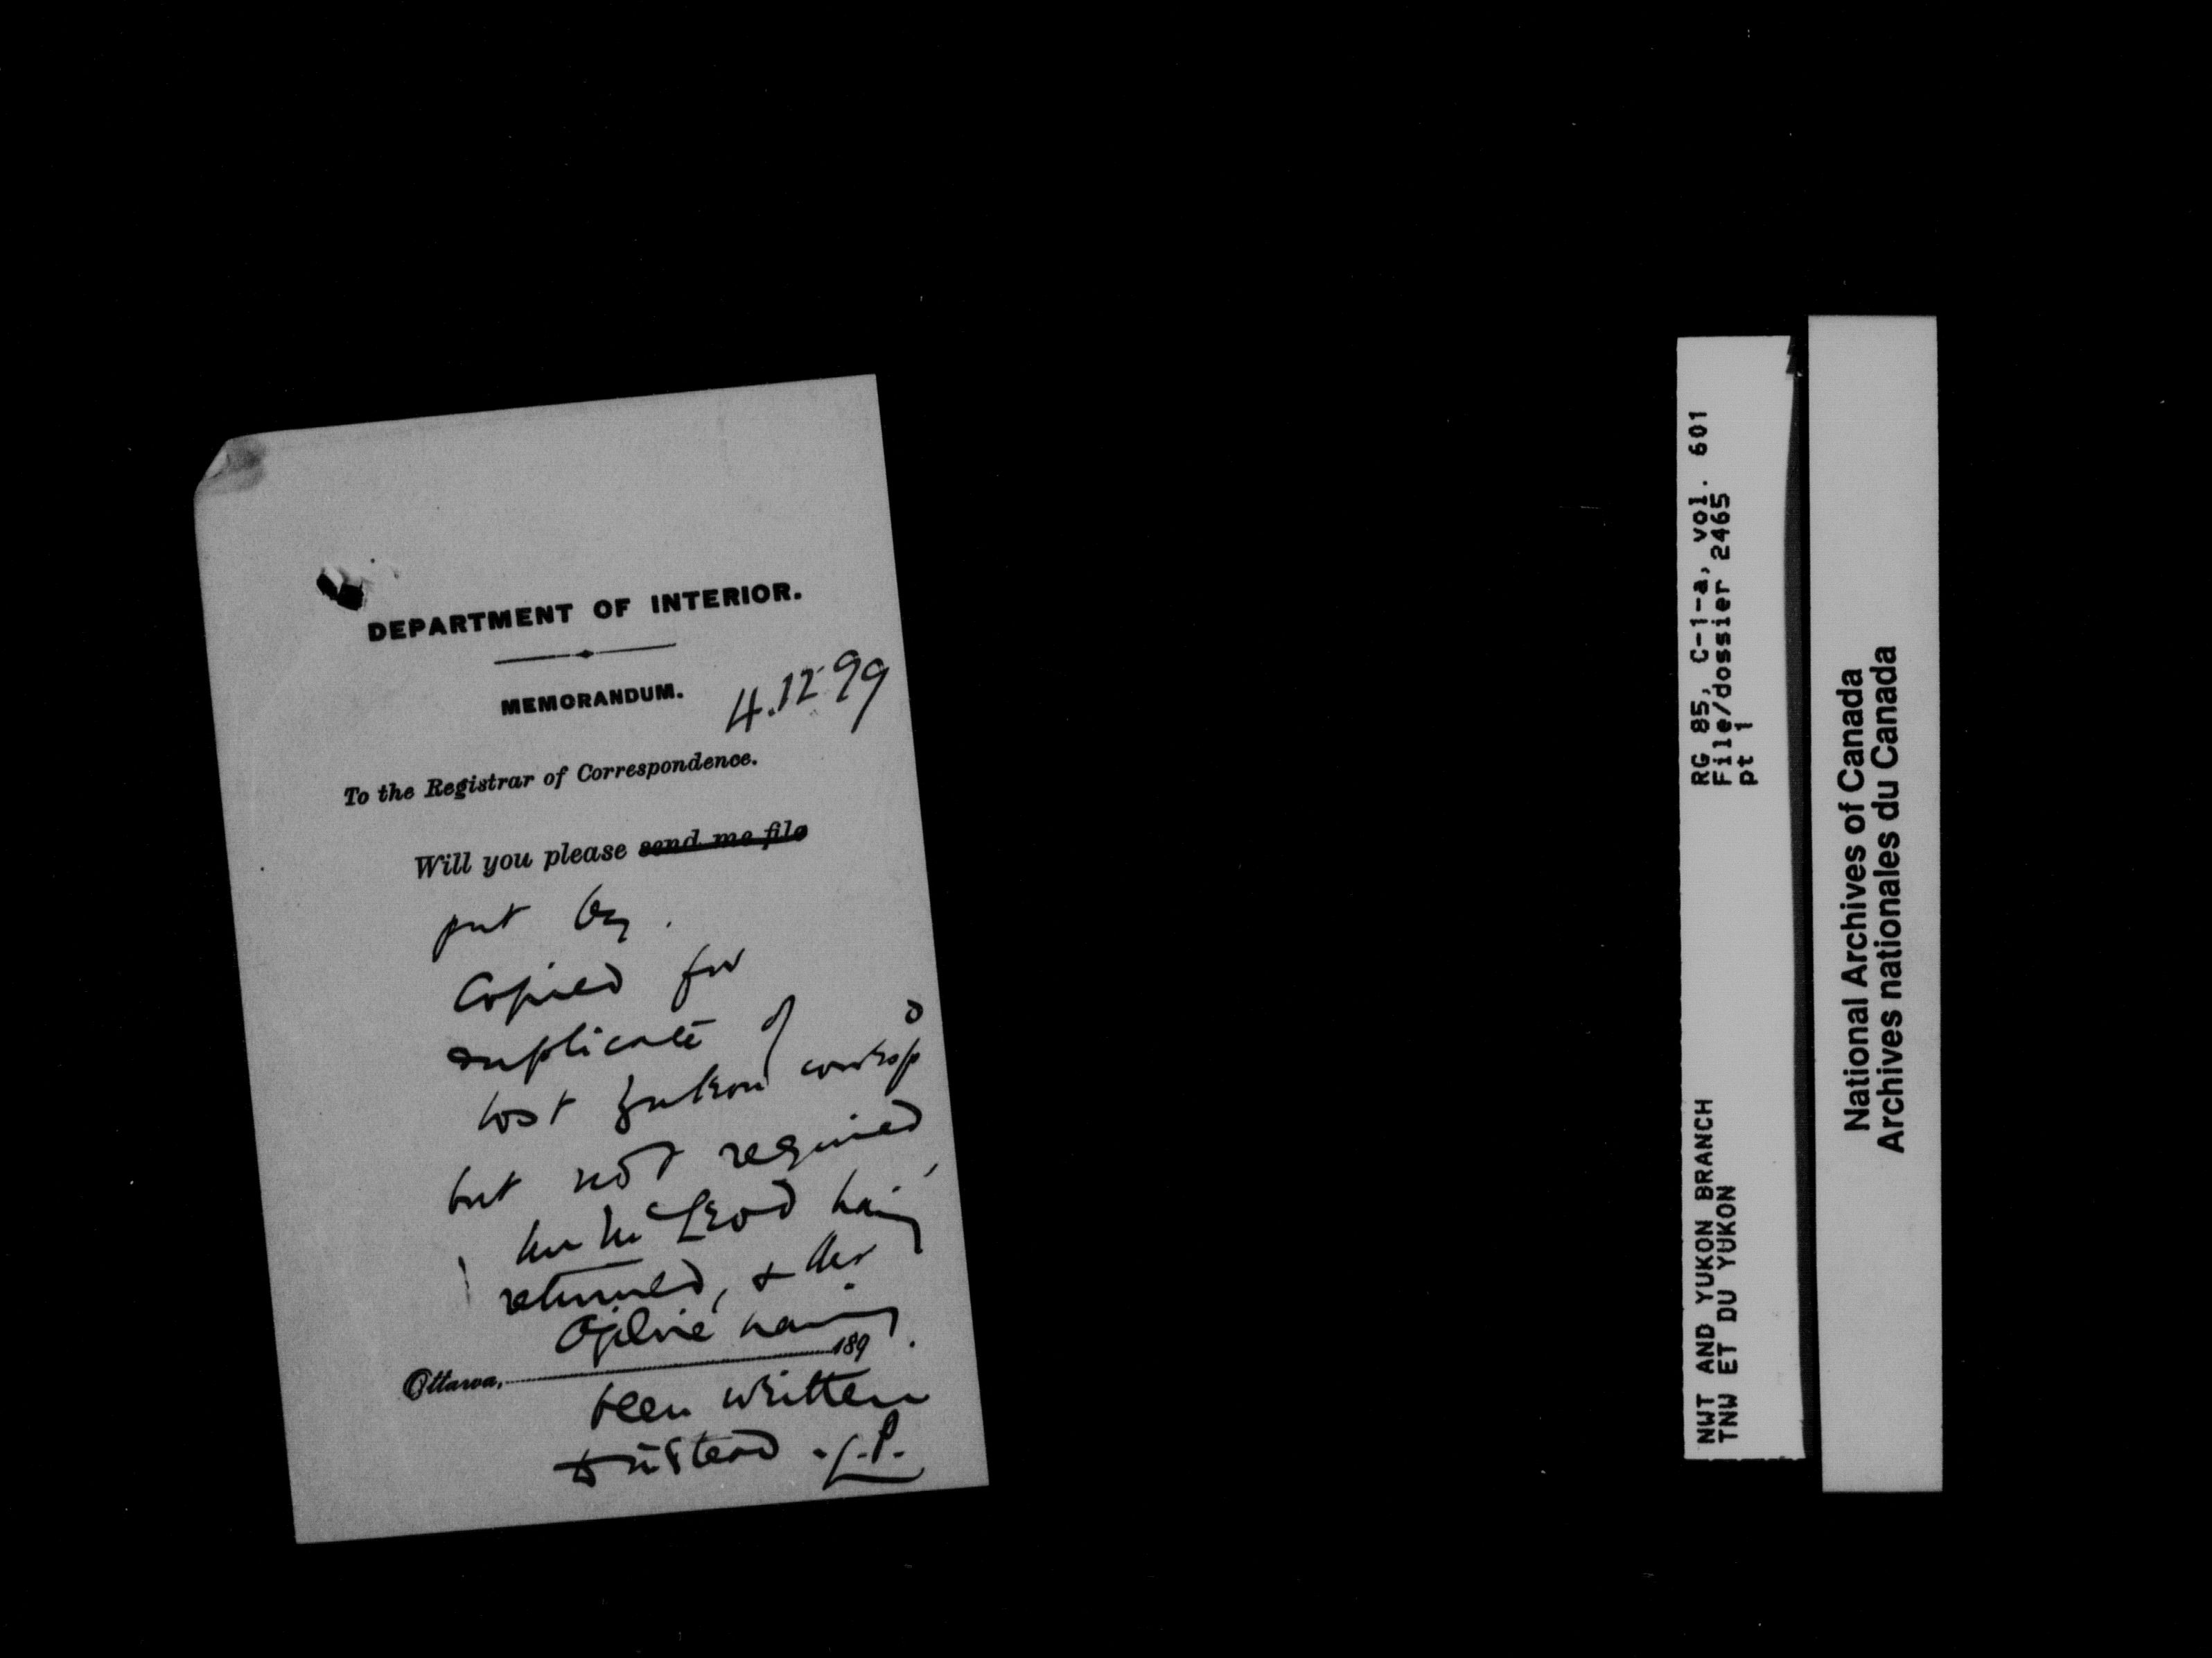 DEPARTMENT OF INTERIOR.
MEMORANDUM.
4.12.99
To the Registrar of Correspondence.
Will you please send me file
put by.
Copied for
duplicate of
lost Yukon
but not required
McLeod having
returned, & Mr
Ogilvie having
Ottawa, 189 .
been written
instead. 
RG 85, C-1-a, vol. 601
File/dossier 2465
pt 1
NWT AND YUKON BRANCH
TNW ET DU YUKON
National Archives of Canada
Archives nationales du Canada